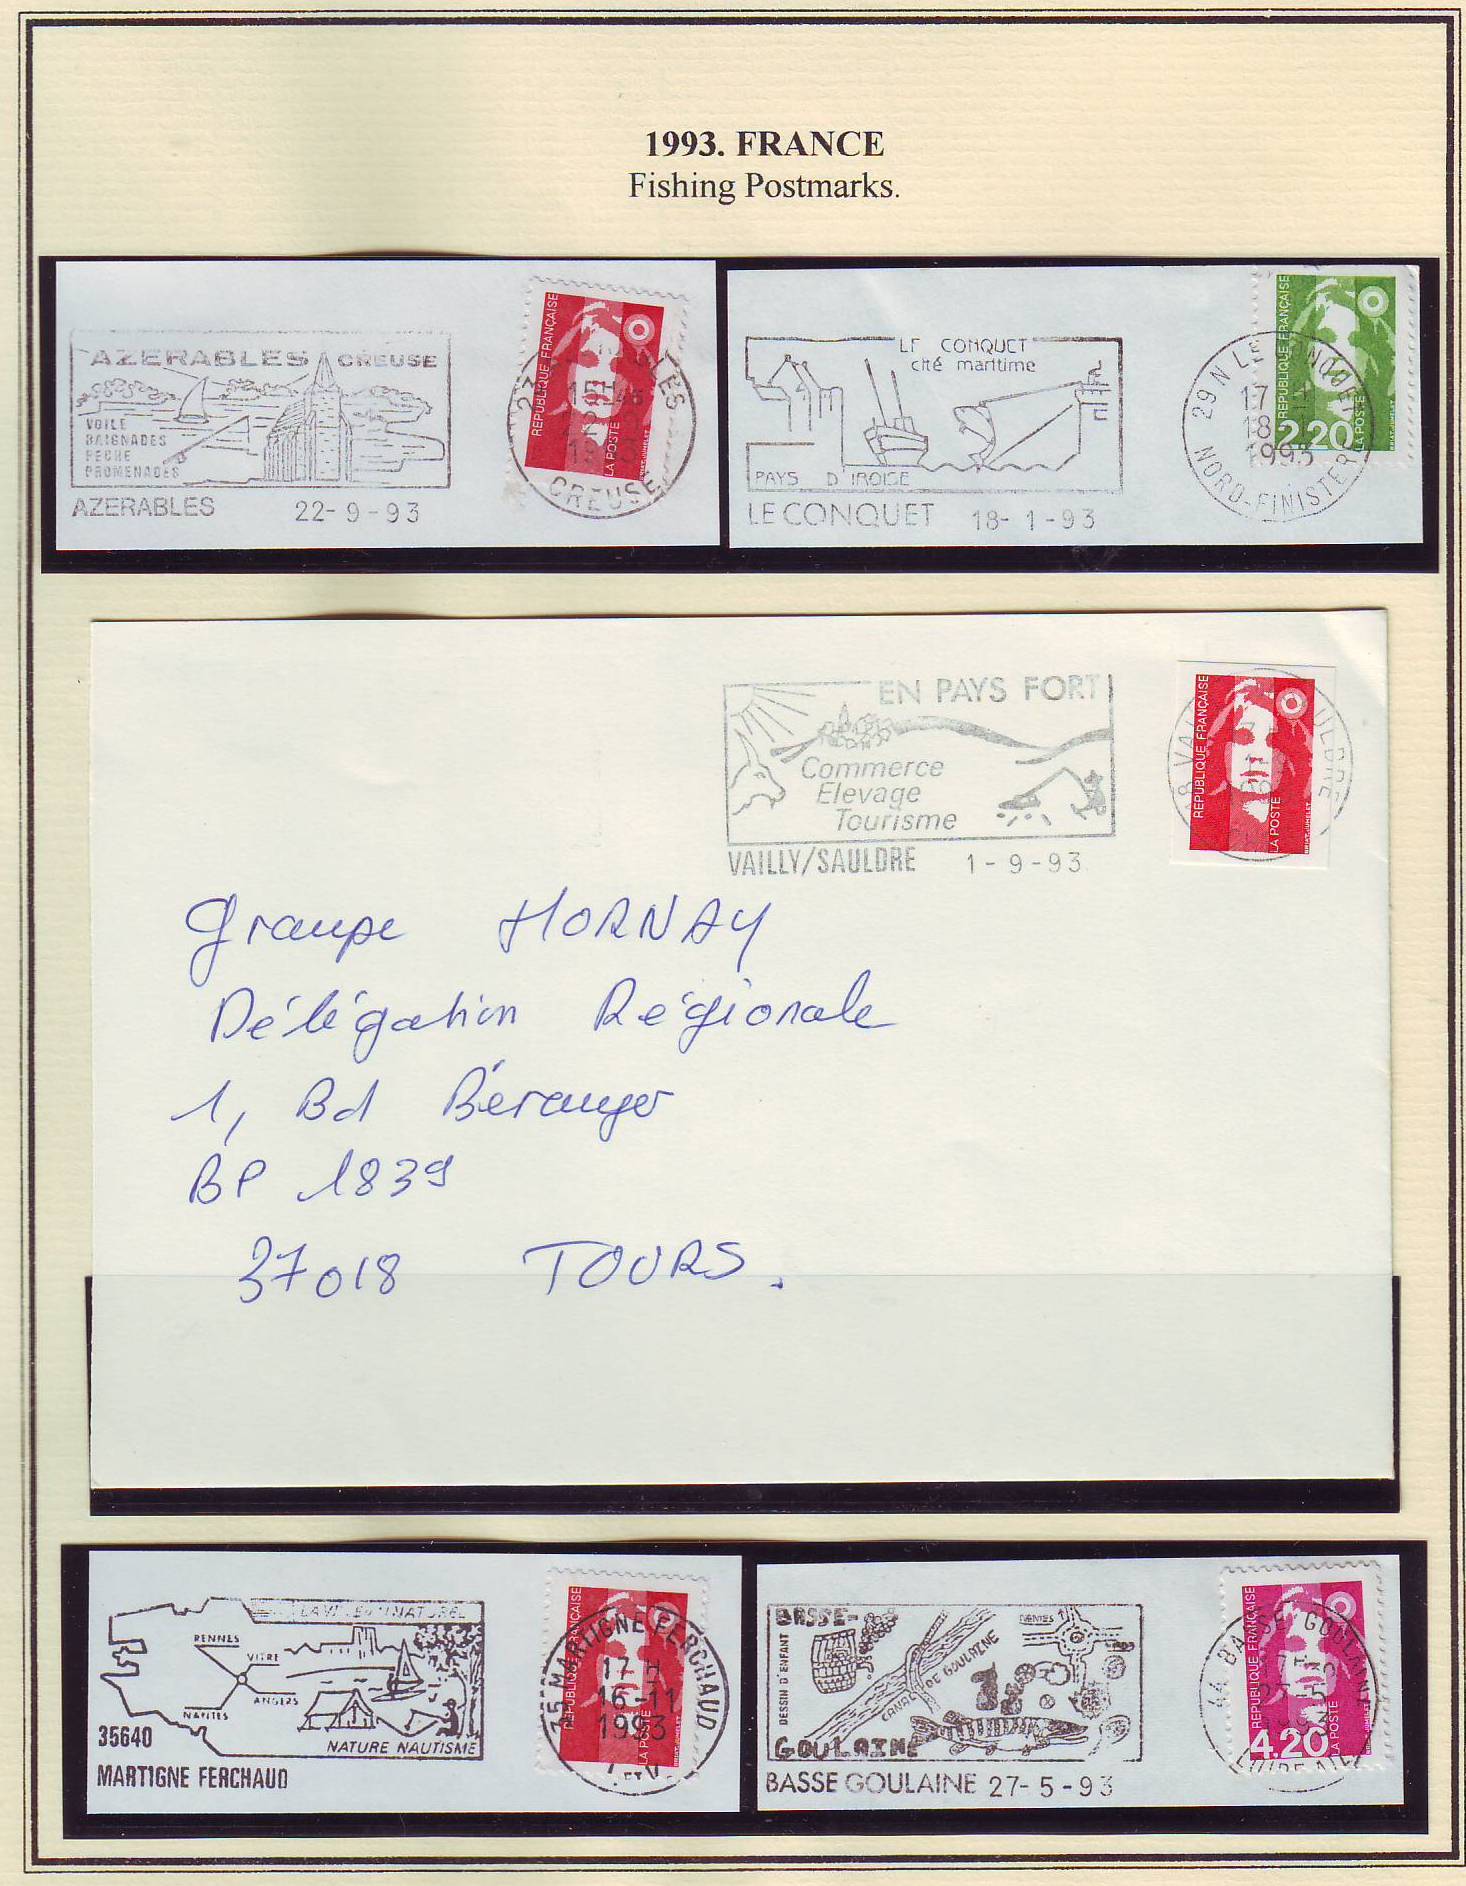 1993. FRANCE
Fishing Postmarks.
AZERABLES CREUSE
VOILE
BAIGNADES
PECHE
PROMENADES
AZERABLES 22-9-93
REPUBLIQUE FRANÇAISE
LA POSTE
15H
CREUSE
LE CONQUET
cité maritime
PAYS D'IROISE
LE CONQUET 18-1-93
REPUBLIQUE FRANÇAISE
2,20
LA POSTE
29N LE
17
18
1993
NORD-FINISTERE
EN PAYS FORT
Commerce
Elevage
Tourisme
VAILLY/SAULDRE 1-9-93
REPUBLIQUE FRANÇAISE
LA POSTE
BRIAT-JUMELET
Groupe HORNAY
Délégation Régionale
1, Bd Béranger
BP 1839
37018 TOURS.
RENNES
VITRE
ANGERS
NANTES
35640
NATURE NAUTISME
MARTIGNE FERCHAUD
REPUBLIQUE FRANÇAISE
LA POSTE
35 MARTIGNE FERCHAUD
17 H
16-11
1993
BASSE-
GOULAINE
DESSIN D'ENFANT
CANAL DE GOULAINE
NANTES
BASSE GOULAINE 27-5-93
REPUBLIQUE FRANÇAISE
4.20
LA POSTE
44 BASSE GOULAINE